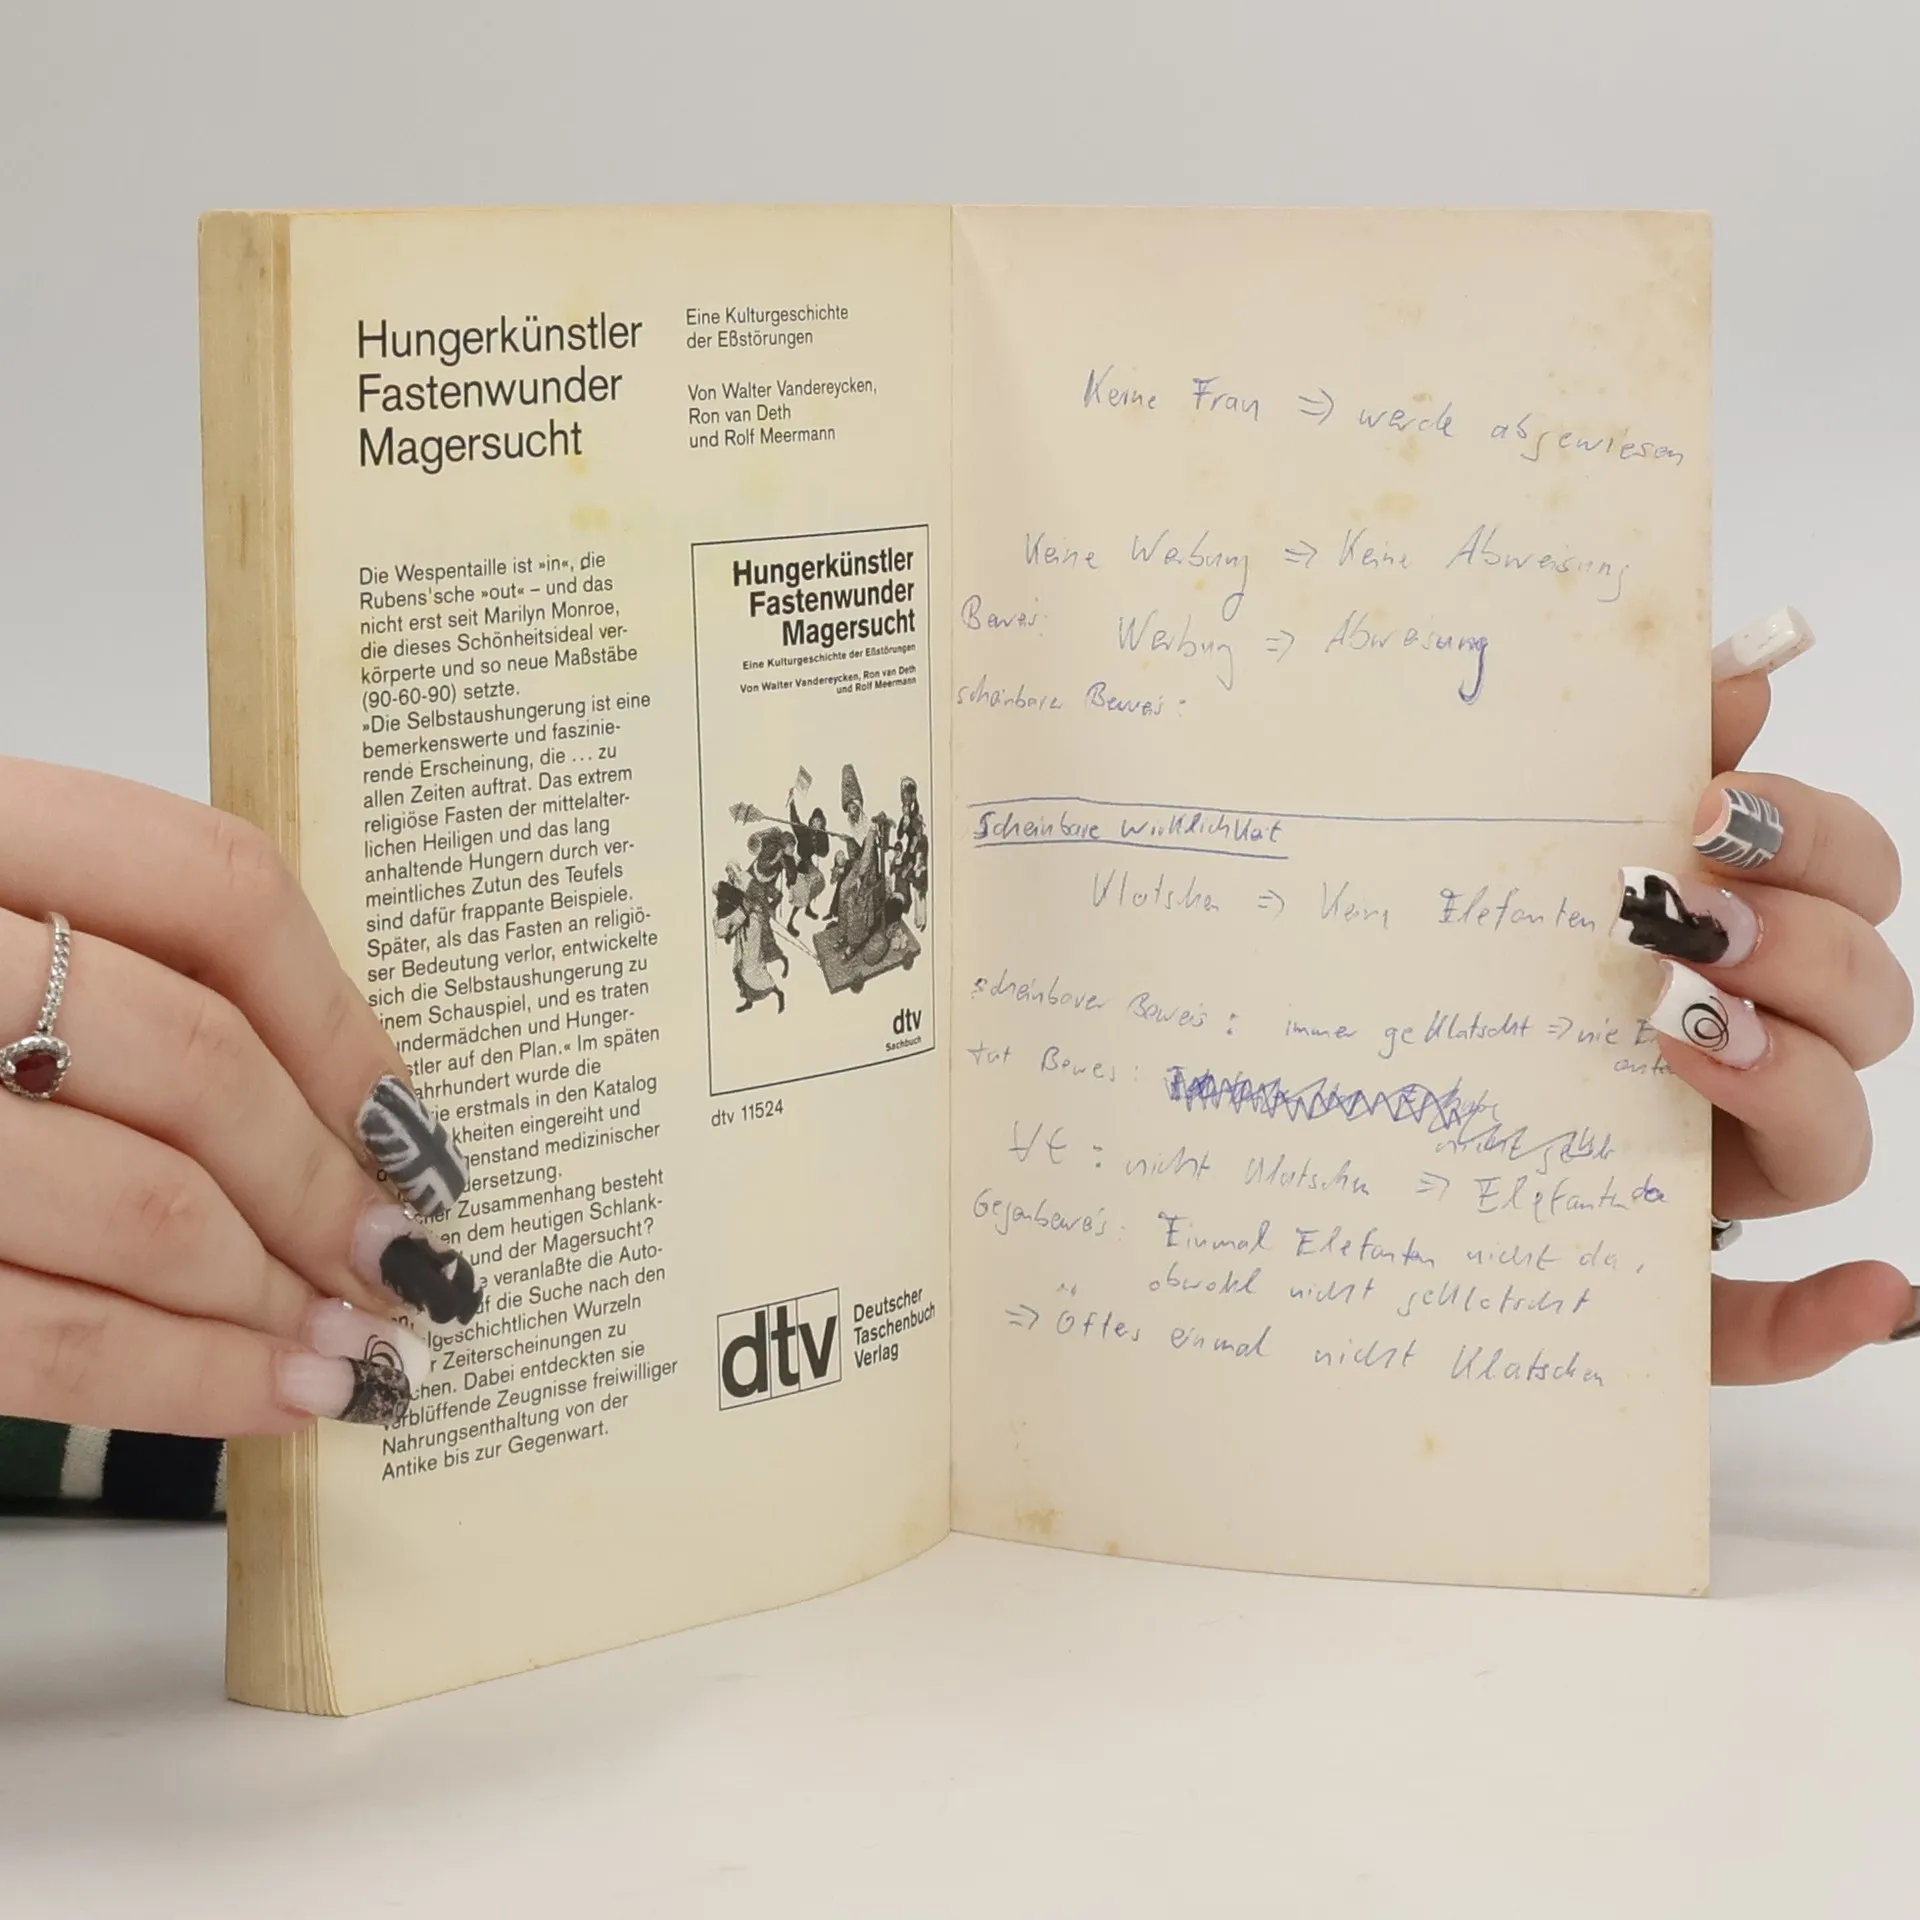 Hungerkünstler
Fastenwunder
Magersucht
Eine Kulturgeschichte
der Eßstörungen
Von Walter Vandereycken,
Ron van Deth
und Rolf Meermann
Die Wespentaille ist »in«, die
Rubens'sche »out« – und das
nicht erst seit Marilyn Monroe,
die dieses Schönheitsideal ver-
körperte und so neue Maßstäbe
(90-60-90) setzte.
»Die Selbstaushungerung ist eine
bemerkenswerte und faszinie-
rende Erscheinung, die ... zu
allen Zeiten auftrat. Das extrem
religiöse Fasten der mittelalter-
lichen Heiligen und das lang
anhaltende Hungern durch ver-
meintliches Zutun des Teufels
sind dafür frappante Beispiele.
Später, als das Fasten an religiö-
ser Bedeutung verlor, entwickelte
sich die Selbstaushungerung zu
inem Schauspiel, und es traten
ndermädchen und Hunger-
stler auf den Plan.« Im späten
ahrhundert wurde die
ie erstmals in den Katalog
kheiten eingereiht und
genstand medizinischer
dersetzung.
cher Zusammenhang besteht
en dem heutigen Schlank-
und der Magersucht?
e veranlaßte die Auto-
uf die Suche nach den
lgeschichtlichen Wurzeln
r Zeiterscheinungen zu
chen. Dabei entdeckten sie
verblüffende Zeugnisse freiwilliger
Nahrungsenthaltung von der
Antike bis zur Gegenwart.
Hungerkünstler
Fastenwunder
Magersucht
Eine Kulturgeschichte der Eßstörungen
Von Walter Vandereycken, Ron van Deth
und Rolf Meermann
dtv
Sachbuch
dtv 11524
dtv
Deutscher
Taschenbuch
Verlag
Keine Frau => werde abgewiesen
Keine Werbung => Keine Abweisung
Beweis: Werbung => Abweisung
scheinbarer Beweis:
Scheinbare Wirklichkeit
Klatschen => Keine Elefanten
scheinbarer Beweis: immer geklatscht => nie
Beweis:
∀t: nicht Klatschen => Elefanten da
Gegenbeweis: Einmal Elefanten nicht da,
obwohl nicht geklatscht
=> Öftes einmal nicht Klatschen